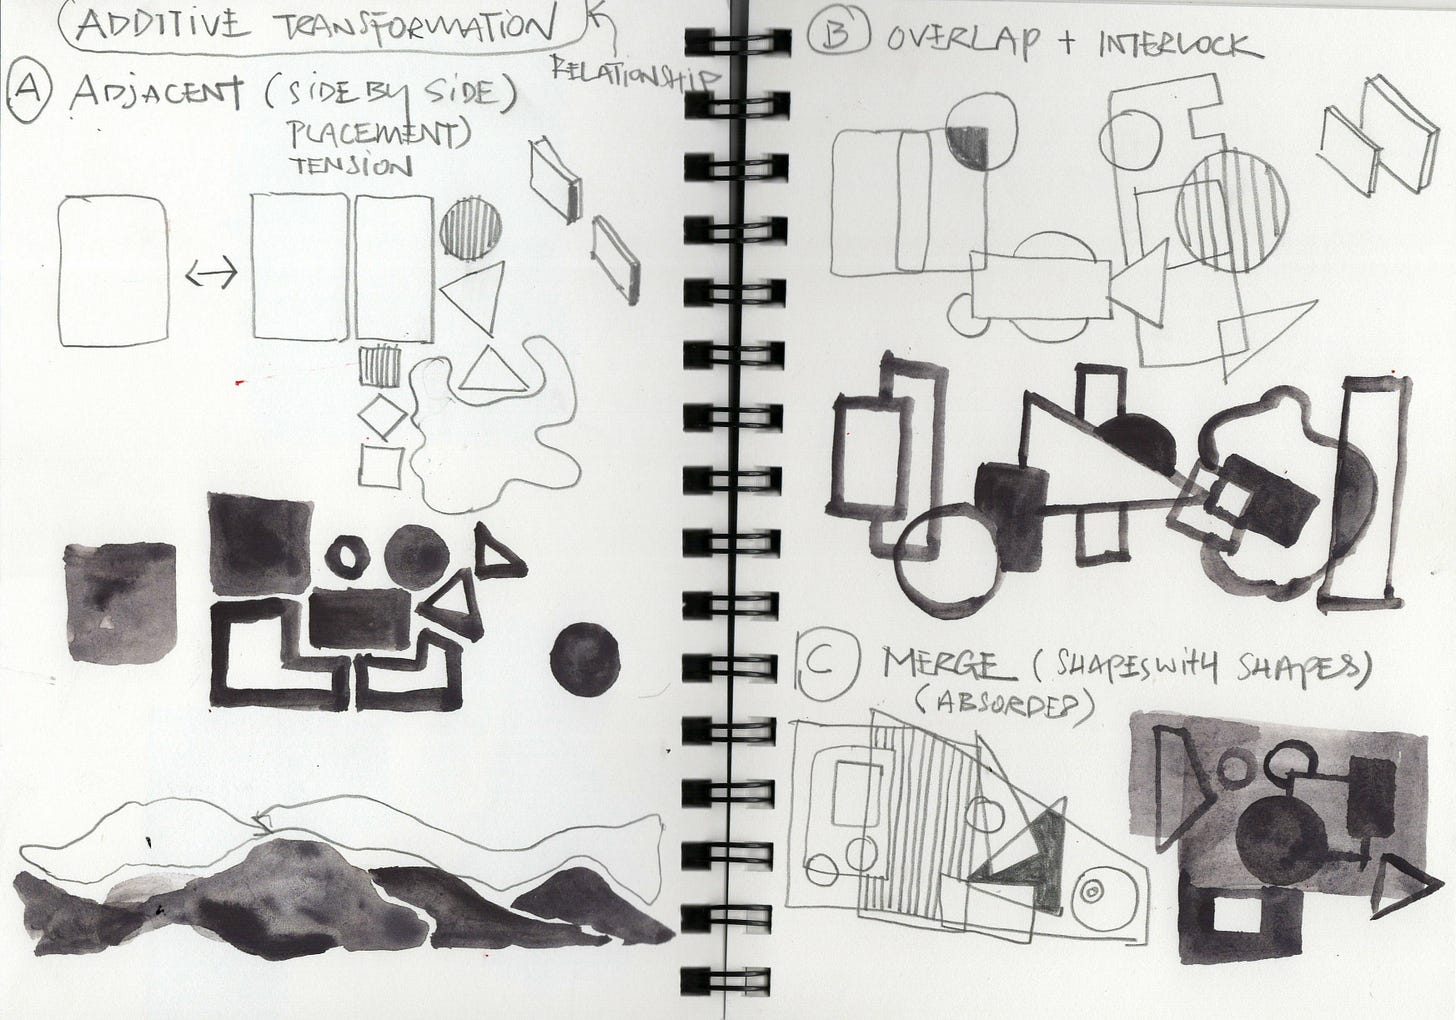 ADDITIVE TRANSFORMATION
RELATIONSHIP
A ADJACENT (SIDE BY SIDE)
PLACEMENT)
TENSION
B OVERLAP + INTERLOCK
C MERGE (SHAPES WITH SHAPES)
(ABSORDED)